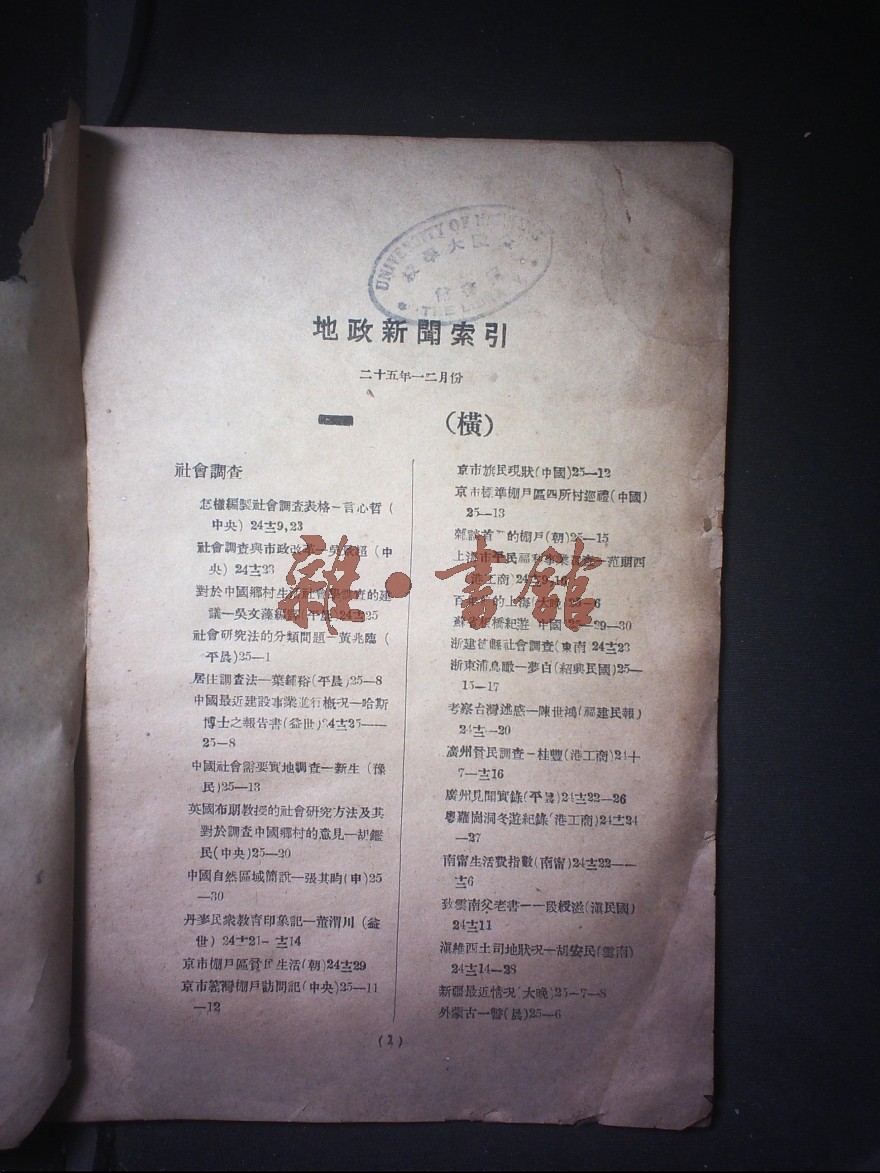 UNIVERSITY OF
地政新聞索引
二十五年一二月份
一 (橫)
社會調查
怎樣編製社會調查表格—言心哲(
中央) 24十二9,23
社會調查與市政改革—吳 超(中
央) 24十二23
對於中國鄉村生活社會學調查的建
議—吳文藻編 平晨)24十二25
社會研究法的分類問題—黃兆臨(
平晨)25—1
居住調查法—葉鍾裕(平晨)25—8
中國最近建設事業進行概況—哈斯
博士之報告書(益世)24十二25——
25—8
中國社會需要實地調查—新生(豫
民)25—13
英國布朗教授的社會研究方法及其
對於調查中國鄉村的意見—胡鑑
民(中央)25—20
中國自然區域簡說—張其昀(申)25
—30
丹麥民衆教育印象記—董渭川(益
世) 24十二21- 十二14
京市棚戶區貧民生活(朝)24十二29
京市 棚戶訪問記(中央)25—11
—12
京市旗民現狀(中國)25—12
京市標準棚戶區四所村巡禮(中國)
25—13
雜談首 的棚戶(朝)25—15
上海市平民福利事業 查—范期四
(港工商)24十二9-10
百 的上海(大晚)25—6
蘇省 橋紀遊 中國 25—29—30
浙建德縣社會調查(東南 24十二23
浙東浦鳥瞰—夢白(紹興民國)25—
15—17
考察台灣述感—陳世鴻(福建民報)
24十二—20
廣州貧民調查—桂豐(港工商)24十
7—十二16
廣州見聞實錄(平晨)24十二22—26
粵蘿崗洞冬遊紀錄(港工商)24十二24
—27
南甯生活費指數(南甯)24十二22——
十二6
致雲南父老書——段綬滋(滇民國)
24十二11
滇維西土司地狀況—胡安民(雲南)
24十二14—28
新疆最近情況(大晚)25—7—8
外蒙古一瞥(晨)25—6
(1)
雜·書館